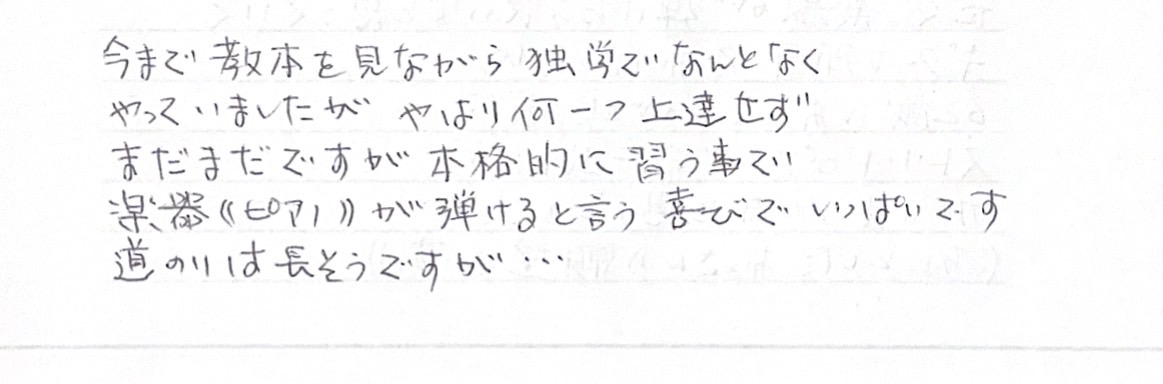 今まで教本を見ながら独学でなんとなく
やっていましたが やはり何一つ上達せず
まだまだですが本格的に習う事で
楽器《ピアノ》が弾けると言う喜びでいっぱいです
道のりは長そうですが…